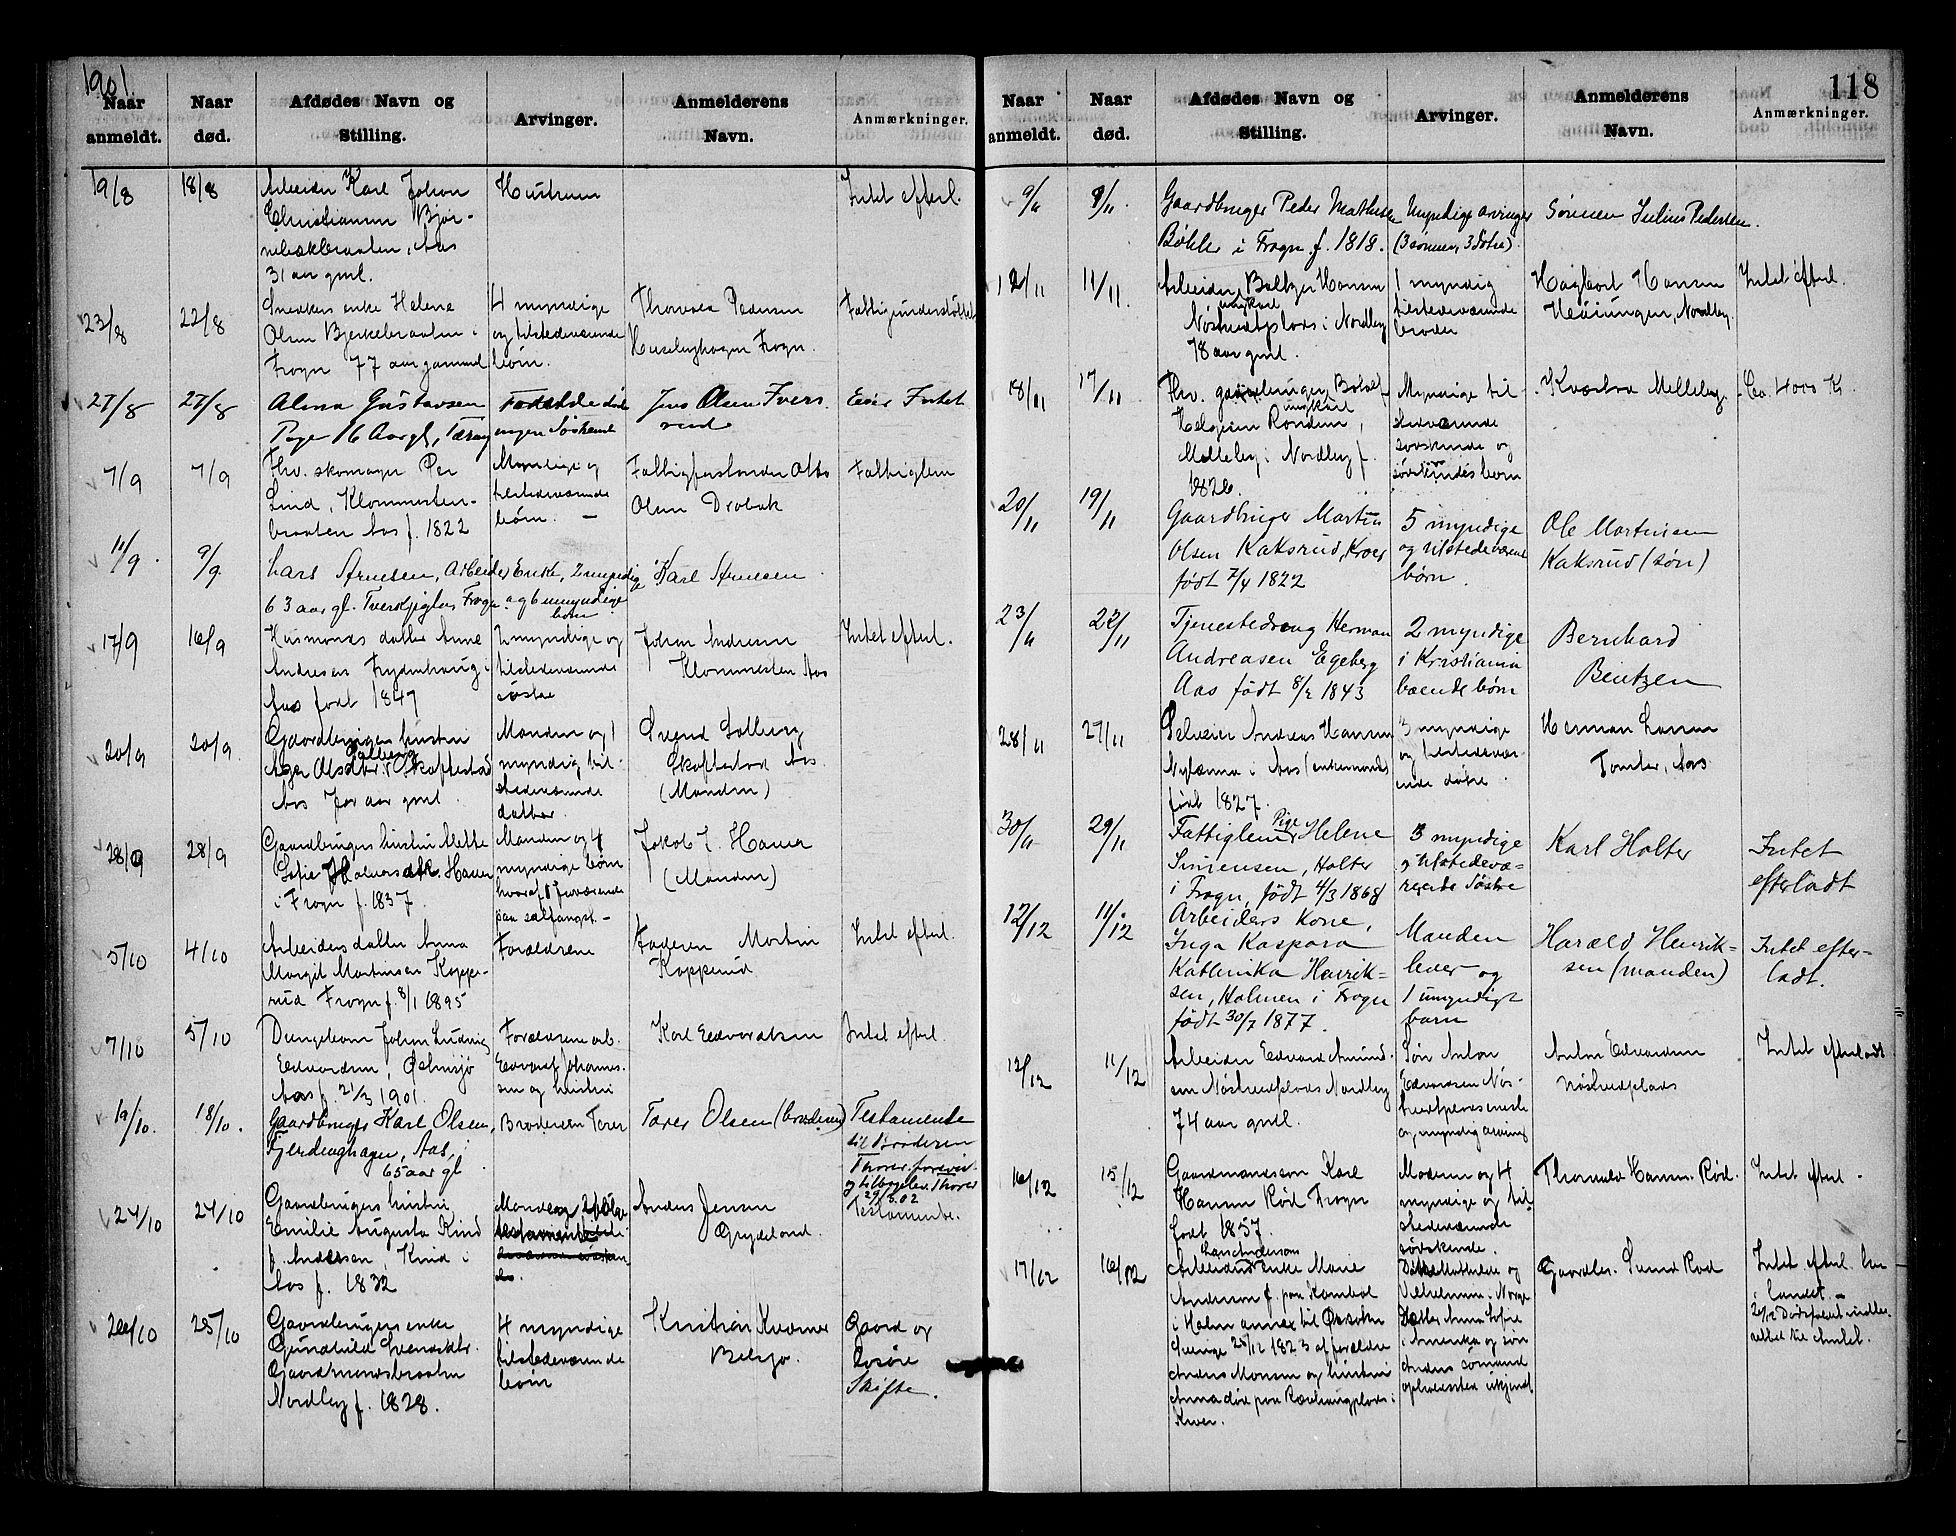 1901.
118
Naar anmeldt.
Naar død.
Afdødes Navn og Stilling.
Arvinger.
Anmelderens Navn.
Anmærkninger.
19/8
18/8
Arbeider Karl Johan
Christiansen Bjør-
nebækbraaten, Aas
31 aar gml.
Hustruen
Intet efterl.
23/8
22/8
Snedkers enke Helene
Olsen Bjerkebraaten i
Frogn 77 aar gammel
4 myndige
og tilstedeværende
børn.
Thorvald Pedersen
Husebyhagen Frogn.
Fattigunderstøttet
27/8
27/8
Alma Gustavsen
Pige 16 Aar gl,
Forældre død
ingen Søskende
Jens Olsen Ivers-
rud
Eier Intet
7/9
7/9
Fhv. skomager Per
Lind, Klommesten-
braaten Aas f. 1822
Myndige og
tilstedeværende
børn. —
Fattigforstander Otto
Olsen Drøbak
Fattiglem
11/9.
9/9.
Lars Arnesen, Arbeider
63 aar gl. Frogn.
Enke, 2 myndige
og 6 umyndige
børn
Karl Arnesen
17/9
16/9
Husmands datter Anne
Andresen Frydenhaug i
Aas født 1847
2 myndige og
tilstedeværende
søstre
Johan Andresen
Klommesten Aas
Intet efterl.
20/9
20/9
Gaardbrugers hustru
Olsdtr Solberg Skoftestad
Aas 70 aar gml.
Manden og 1
myndig til-
stedeværende
datter.
Svend Solberg
Skoftestad Aas
(Manden)
28/9
28/9
Gaardbrugers hustru Mette
Sofie Halvorsdtr. Hauer
i Frogn f. 1837.
Manden og 4
myndige børn
hvoraf 1 fraværende
paa sælfangst. —
Jakob J. Hauer
(Manden)
5/10
4/10
Arbeiders datter Anna
Margit Martinsen Koppe-
rud Frogn f. 8/1 1895
Forældrene
Faderen Martin
Kopperud
Intet efterl.
7/10
5/10
Drengebarn Johan Ludvig
Edvardsen, Østensjø
Aas f. 21/3 1901.
Forældrene arb.
Edvard Johannes-
sen og hustru
Karl Edvardsen
Intet efterl.
19/10.
18/10.
Gaardbruger Karl Olsen,
Fjerdinghagen, Aas,
65 aar gl.
Broderen Torer
Torer Olsen (broderen)
Testamente
til Broderen
Thorer
29/3 02
Testamente.
24/10
24/10
Gaardbrugers hustru
Emilie Augusta Kind
f. Andersen, Kind i
Aas f. 1832
Anders Jensen
Grydeland.
26/10
25/10
Gaardbrugers enke
Gunhild Svendsdtr.
Gaardmansbraaten
Nordby f. 1828.
4 myndige
tilstedeværende
børn
Kristian Kværner
Belsjø.
Gaard og
Løsøre
Skifte.
Naar anmeldt.
Naar død.
Afdødes Navn og Stilling.
Arvinger.
Anmelderens Navn.
Anmærkninger.
9/11
8/11.
Gaardbruger Peder Mathisen
Bøhler i Frogn f. 1818.
Myndige arvinger
(3 sønner, 3 døtre).
Sørensen Julius Pedersen.
12/11
11/11.
Arbeider, ungkarl Baltzer Hansen
Nøstvedtplads i Nordby
78 aar gml.
1 myndig
tilstedeværende
broder
Hagbart Hansen
Nordby.
Intet efterl.
18/11
17/11
Fhv. gaardbruger, ungkarl
Melleby i Nordby f.
1826.
Myndige til-
stedeværende
søvskende og
søvskendes børn
Melleby.
Ca. 4000 K
20/11
19/11
Gaardbruger Martin
Olsen Kaksrud, Kroer
født 7/4 1822
5 myndige
og tilstedeværende
børn.
Ole Martinsen
Kaksrud (søn)
23/11
22/11
Tjenestedreng Herman
Andreasen Egeberg
Aas født 8/2 1843
2 myndige
i Kristiania
boende børn
Bernhard
Bentzen
28/11
27/11
Selveier Andreas Hansen
i Aas (enkemand)
født 1827.
3 myndige
og tilstedevær-
ende døtre.
Herman Larsen
Tomter, Aas
30/11
29/11
Fattiglem Pige Helene
Holter
i Frogn, født 4/3 1868
3 myndige
og tilstedevæ-
rende Søstre
Karl Holter
Intet
efterladt
12/12
11/12
Arbeiders Kone,
Inga Kaspara
Kathinka Henrik-
sen, Holmen i Frogn
født 30/7 1877.
Manden
lever og
1 umyndigt
barn
Harald Henrik-
sen (manden)
Intet efter-
ladt.
12/12
11/12
Arbeider Edvard Amund-
sen Nøstvedtplads Nordby
74 aar gml.
Søn Anton
Edvardsen Nøs-
tvedtplads eneste
og myndig arving
Anton Edvardsen
Nøstvedtplads
Intet efterladt
16/12
15/12
Gaardmandssøn Karl
Hansen Rød Frogn
født 1857.
Moderen og 4
myndige og til-
stedeværende
søvskende.
Thorvald Hansen Rød.
Intet efterl.
17/12
16/12
Arbeider Lars Andersens enke Marie
Anderson f. paa
i Holm annex til
Sverige 25/12 1823 af forældre
Anders Monsen og hustru
Anna død paa Rævhaugplads i
Kroer.
Døtre Mathilde og
Vilhelmine i Norge
Datter Anna Sofie
i Amerika og søn
Anders sømand
opholdssted ukjendt
Gaardbr. Rød
Intet efterl. her
i landet. —